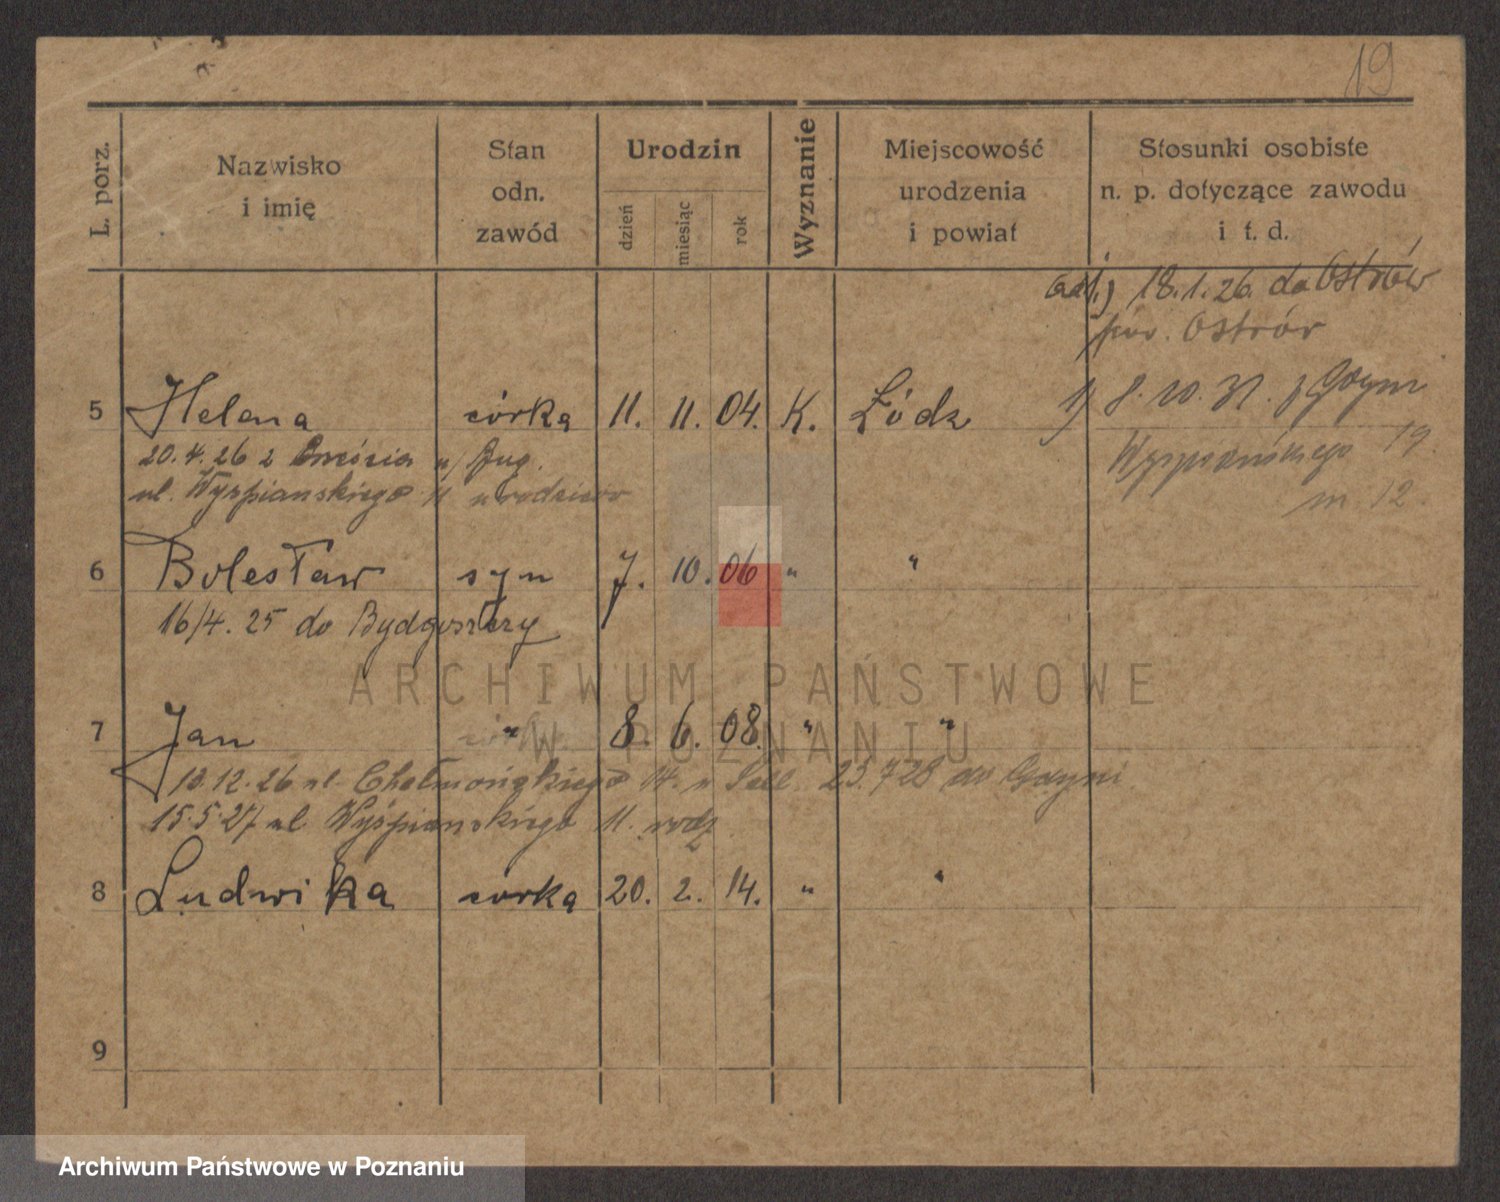 19
L. porz.
Nazwisko
i imię
Stan
odn.
zawód
Urodzin
dzień
miesiąc
rok
Wyznanie
Miejscowość
urodzenia
i powiat
Stosunki osobiste
n. p. dotyczące zawodu
i t. d.
18.1.26. do Ostrów
pow. Ostrów
5 Helena córka 11. 11. 04. K. Łódz
1) 8. 10. 31. z Gdyni
20.4.26 z Brześcia n/ Bug.
Wyspiańskiego 19.
ul. Wyspianskiego 11 u rodziców
m 12.
6 Bolesław syn 7. 10. 06 " "
16/4. 25 do Bydgoszczy
ARCHIWUM PAŃSTWOWE
W POZNANIU
7 Jan " 8. 6. 08. " "
13.12.26 ul. Chełmońskiego 14. u 23.7 28 do Gdyni
15.5.27 ul Wyśpianskiego 11. rodz
8 Ludwika córka 20. 2. 14. " "
9
Archiwum Państwowe w Poznaniu